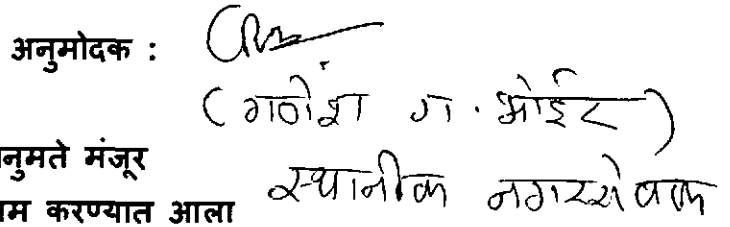 अनुमोदक :
(गणेश ग. भोईर)
नुमते मंजूर
स्थानीक नगरसेवक
म करण्यात आला